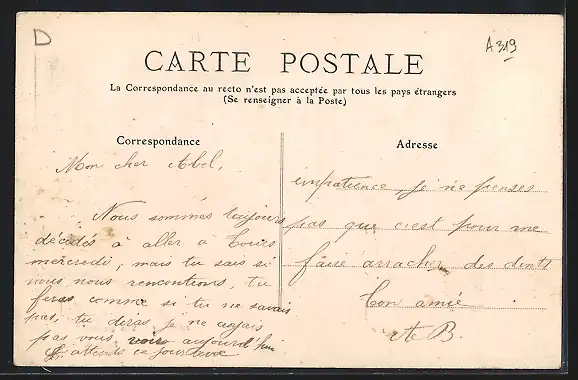 D
A 319
CARTE POSTALE
La Correspondance au recto n'est pas acceptée par tous les pays étrangers
(Se renseigner à la Poste)
Correspondance
Mon cher Abel,
Nous sommes toujours
décidés à aller à Tours
mercredi, mais tu sais si
nous nous rencontrons, tu
feras comme si tu ne savais
pas, tu diras je ne croyais
pas vous voir aujourd'hui
J'attends ce jour avec
Adresse
impatience, je ne penses
pas que c'est pour me
faire arracher des dents
Ton amie
A B.